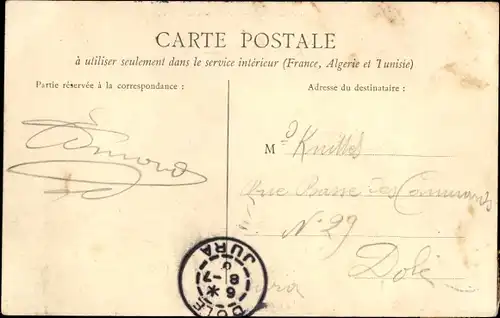 CARTE POSTALE
à utiliser seulement dans le service intérieur (France, Algerie et Tunisie)
Partie réservée à la correspondance :
Adresse du destinataire :
M
Rue Basse des
N° 29
Dole
DOLE
JURA